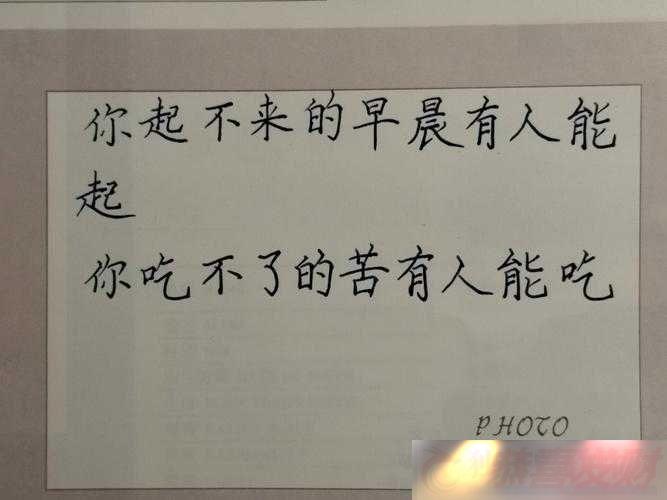 你起不来的早晨有人能
起
你吃不了的苦有人能吃
PHOTO